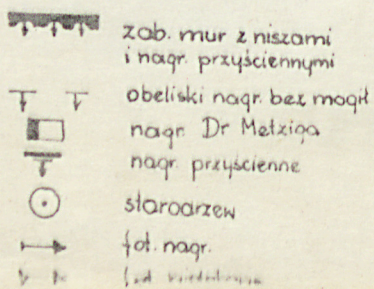 zab. mur z niszami
i nagr. przyściennymi
obeliski nagr. bez mogił
nagr. Dr Metziga
nagr. przyścienne
starodrzew
fot. nagr.